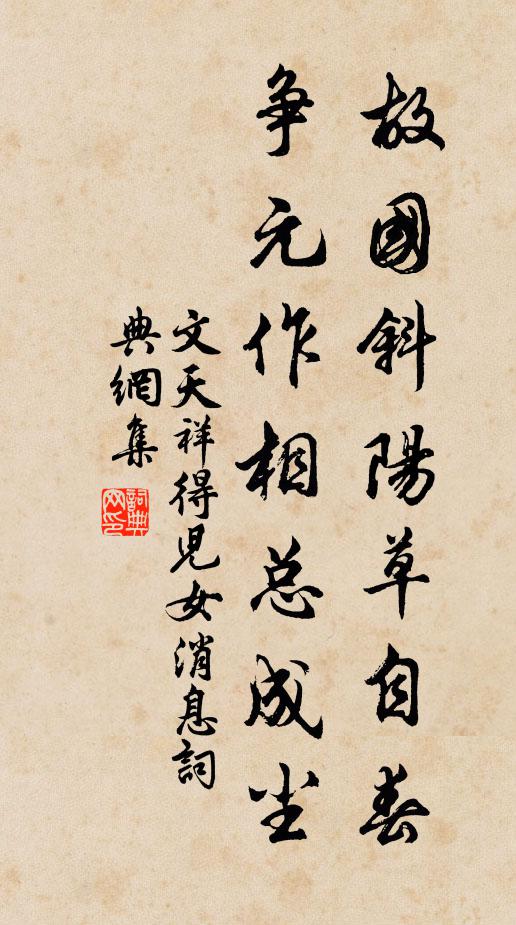 故國斜陽草自春
争元作相总成尘
文天祥得児女消息詞
典網集
詞典
网印